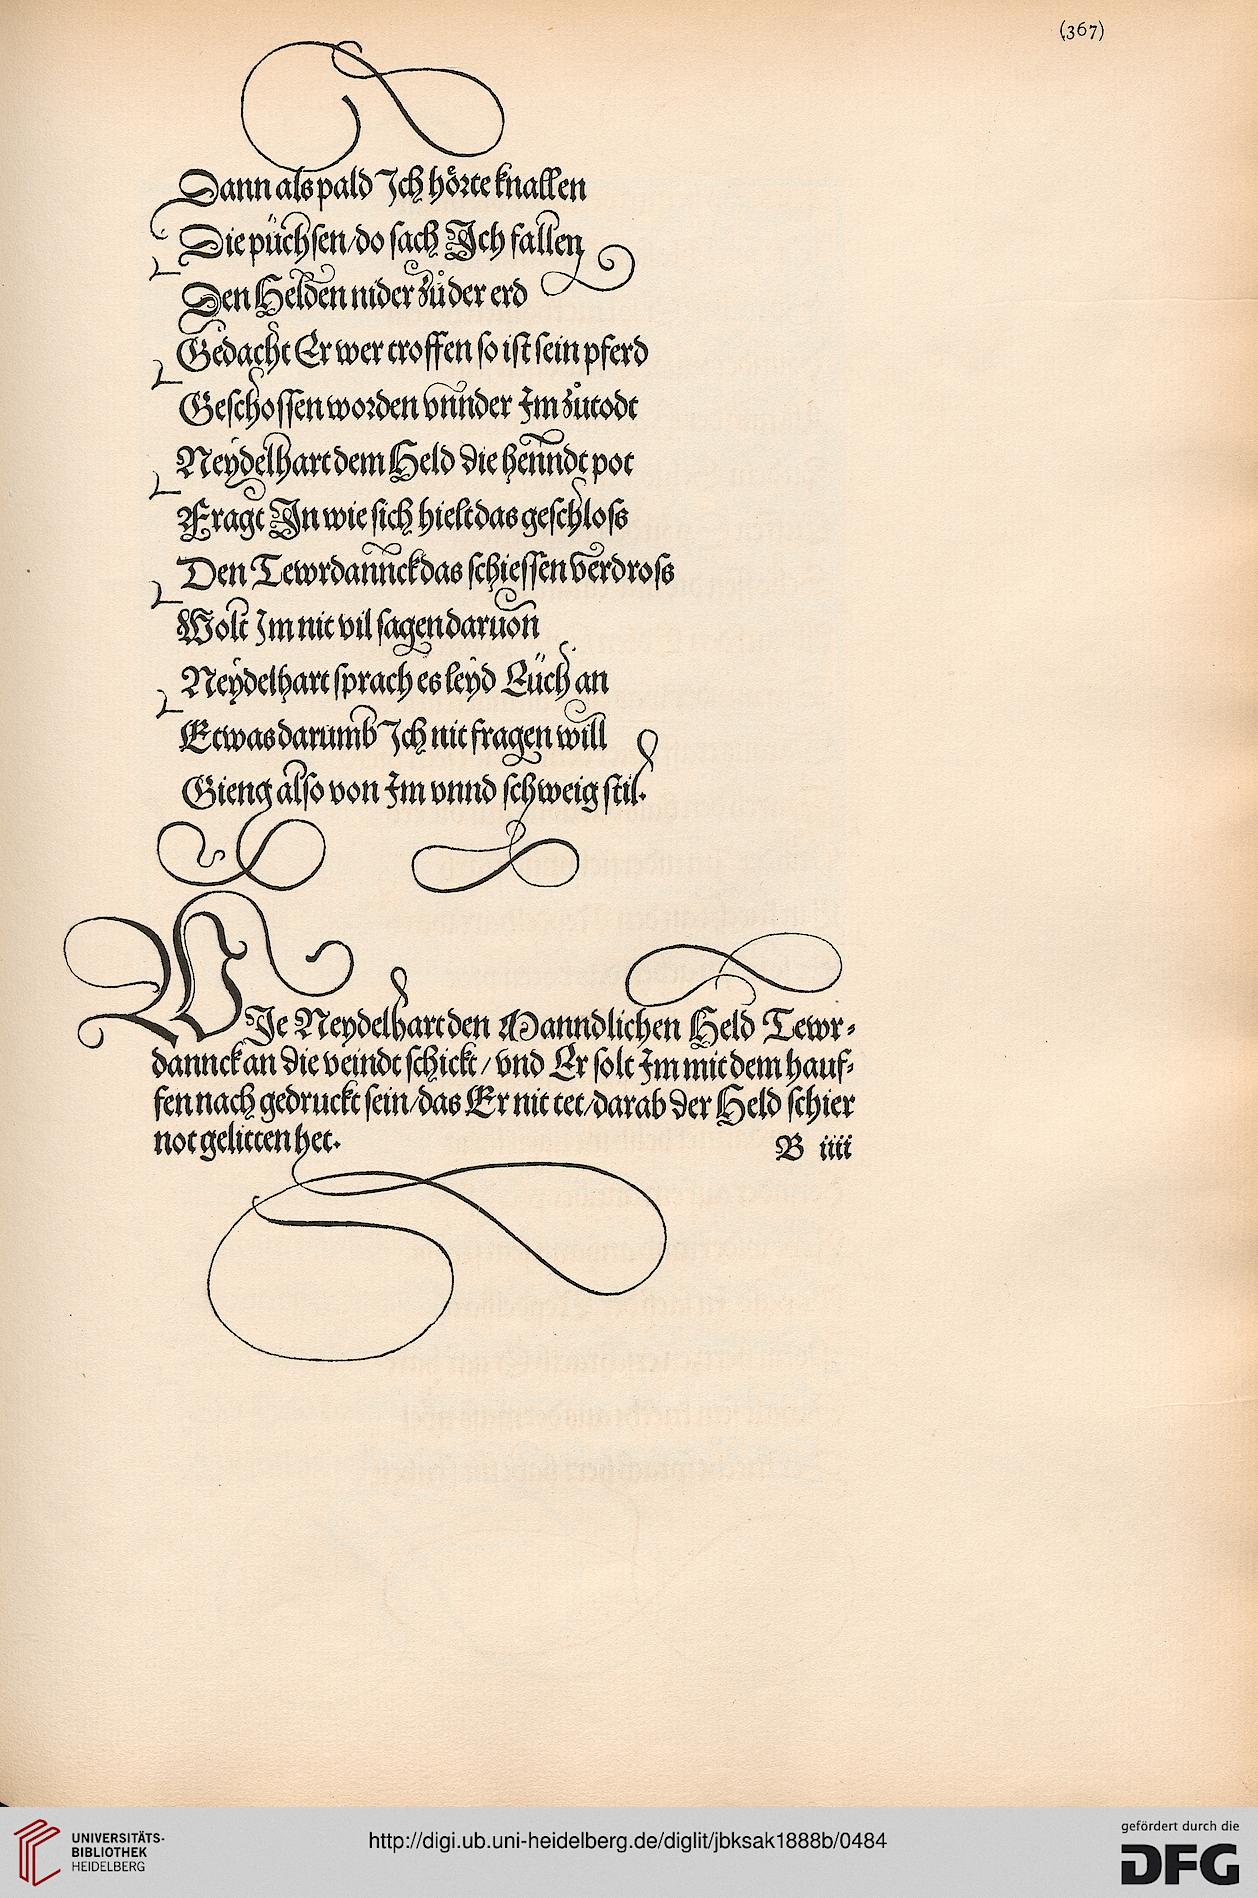 (367)
Dann als pald Ich hörte knallen
Die püchsen/do sach Ich fallen
Den Helden nider zů der erd
Gedacht Er wer troffen so ist sein pferd
Geschossen worden vnnder Im zů todt
Neydelhart dem Held die henndt pot
Fragt In wie sich hielt das geschloss
Den Tewrdannck das schiessen verdross
Wolt Im nit vil sagen daruon
Neydelhart sprach es leyd Eüch an
Etwas darumb Ich nit fragen will
Gieng also von Im vnnd schweig stil.
WIe Neydelhart den Manndlichen Held Tewr=
dannck an die veindt schickt/vnd Er solt Im mit dem hauf=
fen nach gedruckt sein/das Er nit tet/darab der Held schier
not gelitten het.
B iiii
UNIVERSITÄTS-
BIBLIOTHEK
HEIDELBERG
http://digi.ub.uni-heidelberg.de/diglit/jbksak1888b/0484
gefördert durch die
DFG